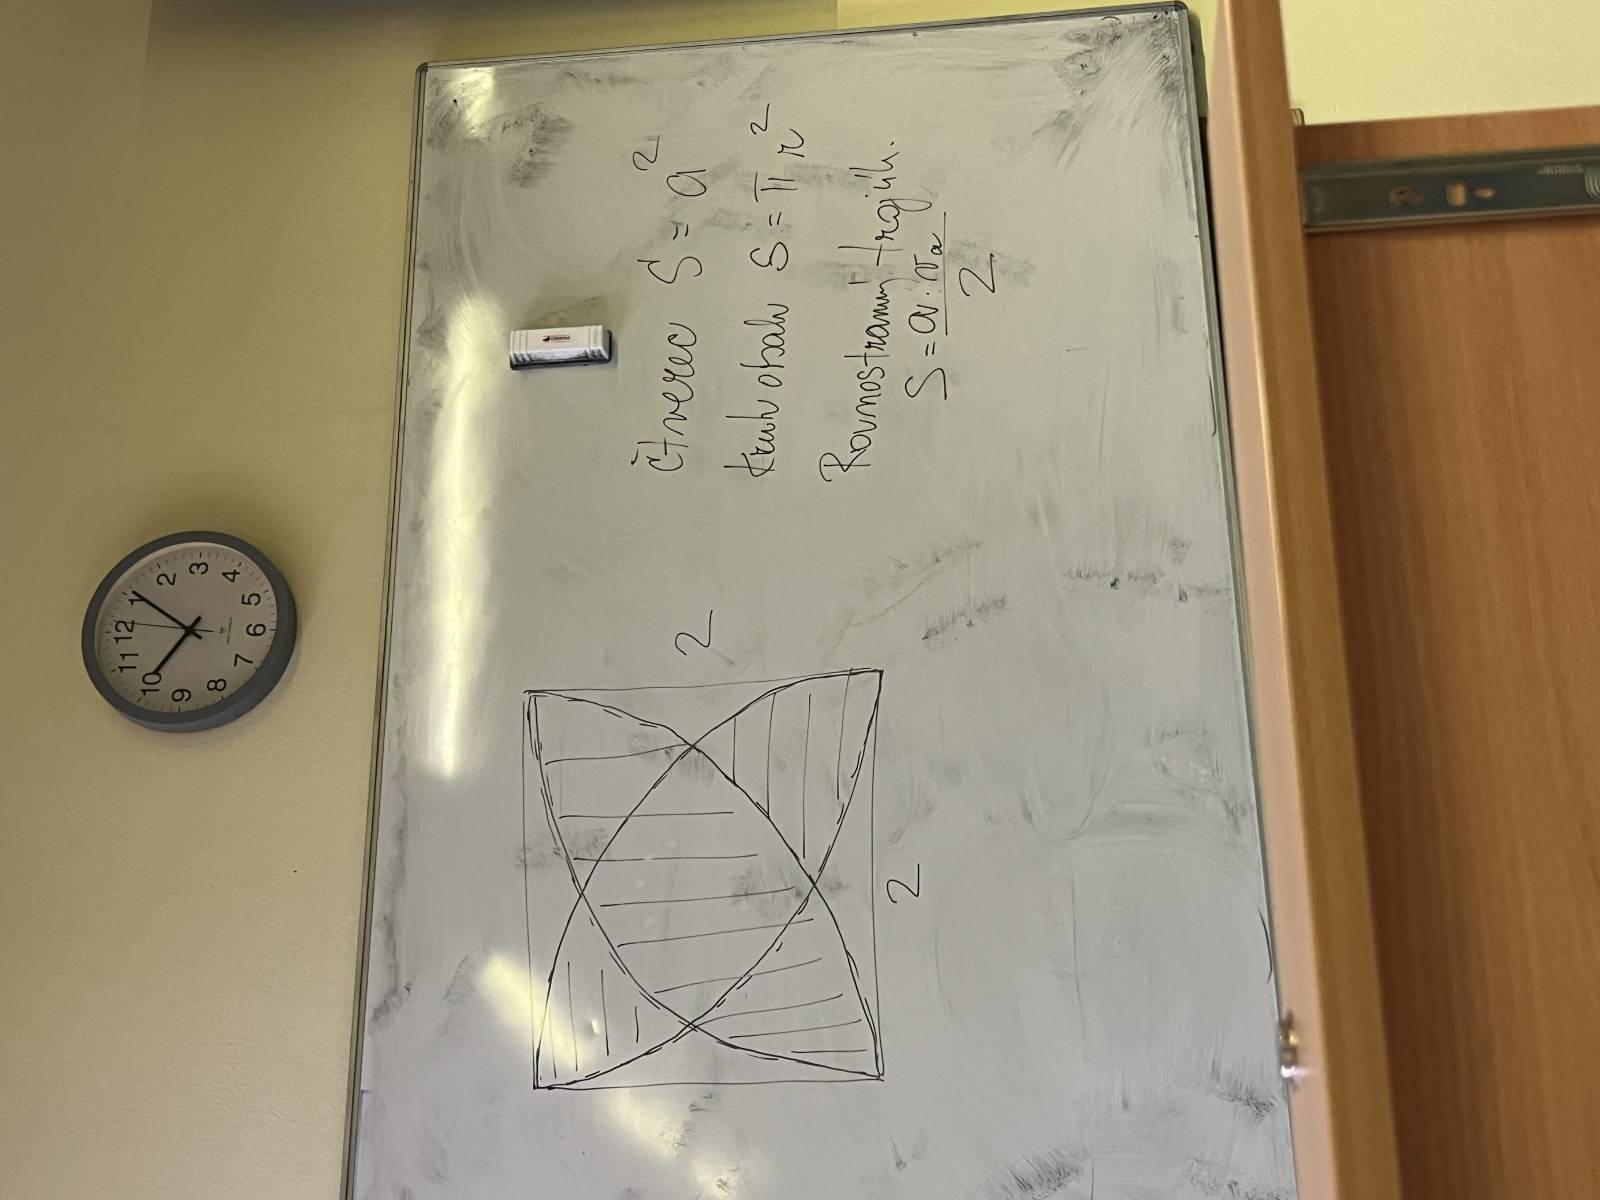 Čtverec S = a²
Kruh obsah S = π r²
Rovnostranný trojúh.
S = a · vₐ / 2
2
2
12
1
2
3
4
5
6
7
8
9
10
11